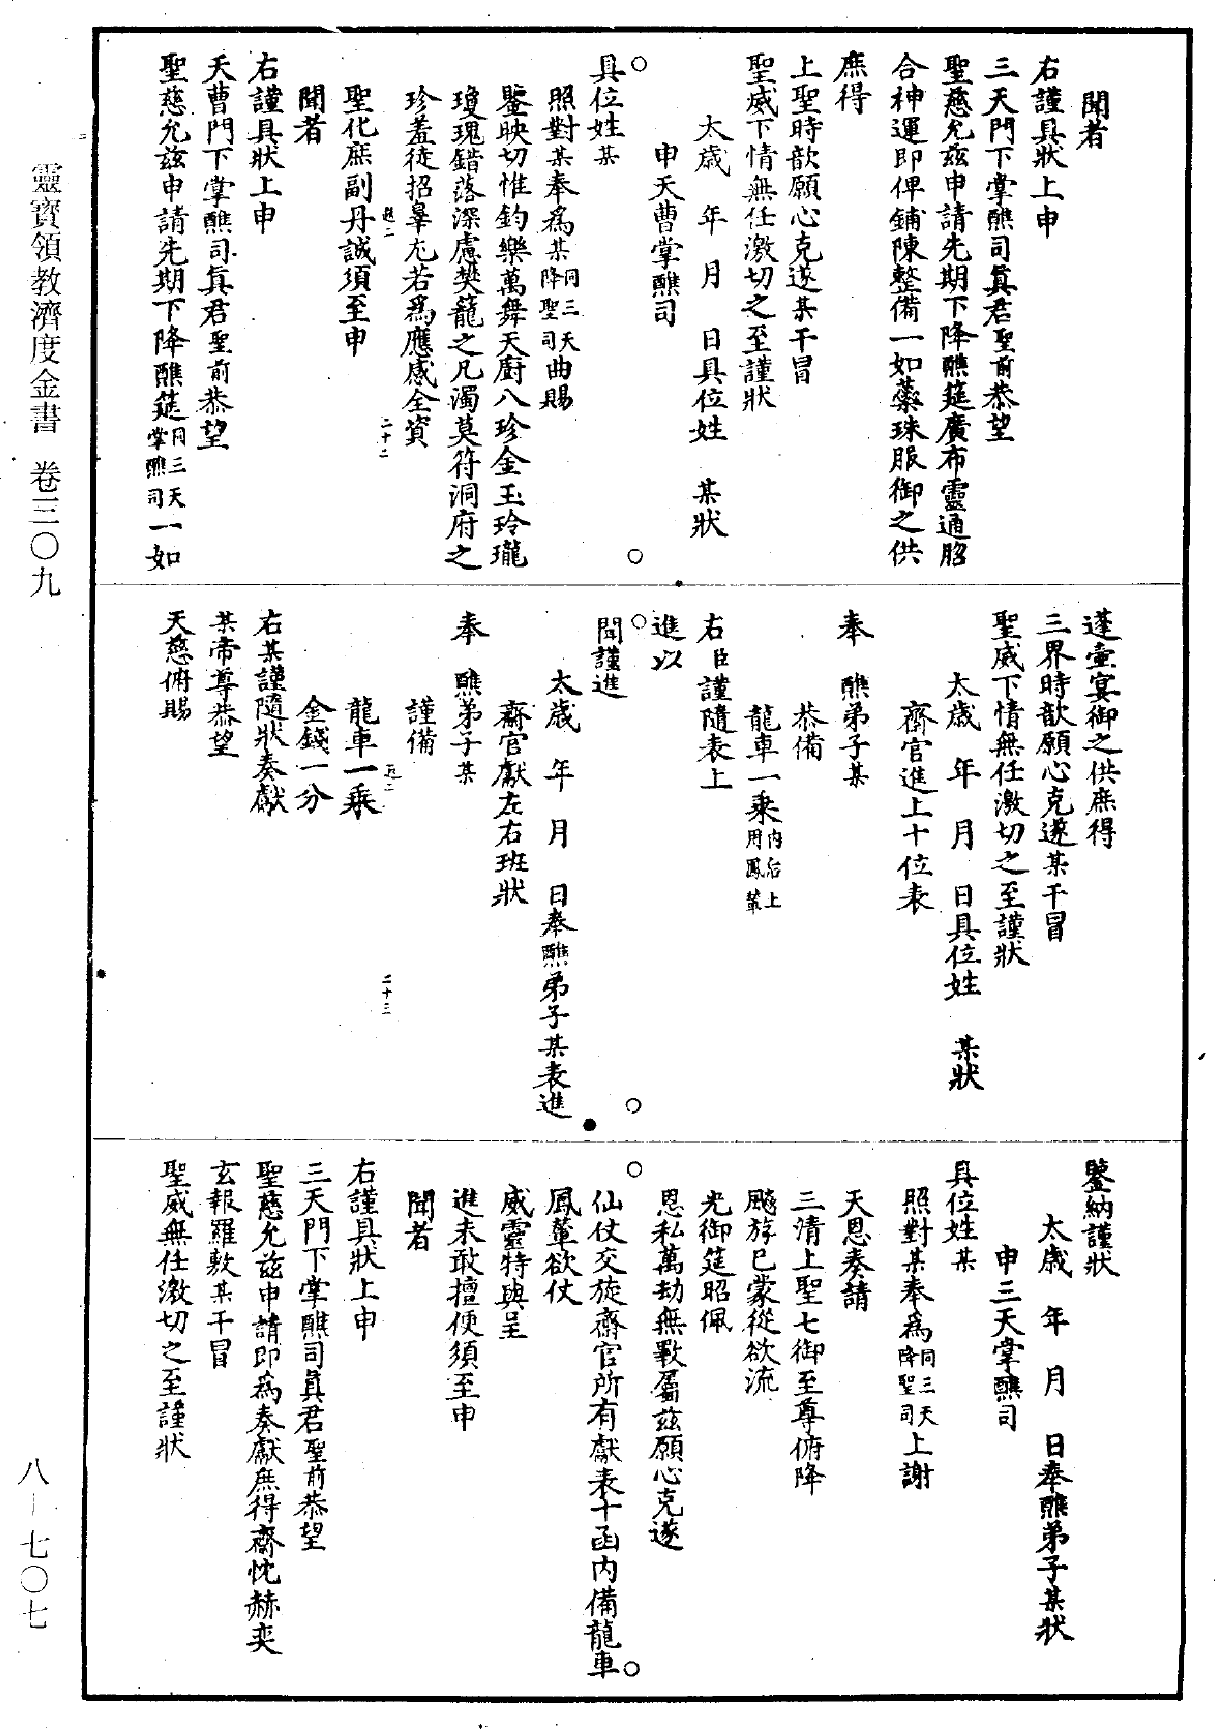 聞者
右謹具狀上申
三天門下掌醮司眞君聖前恭望
聖慈允兹申請先期下降醮筵廣布靈通肸
合神運即俾鋪陳整備一如蘂珠服御之供
庶得
上聖時歆願心克遂某干冒
聖威下情無任激切之至謹狀
太歲　年　月　日具位姓　某狀
申天曹掌醮司
具位姓某
照對某奉爲某同三天降聖司曲賜
鑒映切惟鈞樂萬舞天廚八珍金玉玲瓏
瓊瑰錯落深慮樊籠之凡濁莫符洞府之
珍羞徒招辠尤若爲應感全資
二十二
聖化庶副丹誠須至申
聞者
右謹具狀上申
天曹門下掌醮司眞君聖前恭望
聖慈允兹申請先期下降醮筵同三天掌醮司一如
蓬壷宴御之供庶得
三界時歆願心克遂某干冒
聖威下情無任激切之至謹狀
太歲　年　月　日具位姓　某狀
齋官進上十位表
奉　醮弟子某
恭備
龍車一乘內后上用鳳輦
右臣謹隨表上
進以
聞謹進
太歲　年　月　日奉醮弟子某表進
齋官獻左右班狀
奉　醮弟子某
謹備
二十三
龍車一乘
金錢一分
右某謹隨狀奏獻
某帝尊恭望
天慈俯賜
鑒納謹狀
太歲　年　月　日奉醮弟子某狀
申三天掌醮司
具位姓某
照對某奉爲同三天降聖司上謝
天恩奏請
三清上聖七御至尊俯降
飈斿已蒙從欲流
光御筵昭佩
恩私萬劫無斁屬兹願心克遂
仙仗交旋齋官所有獻表十函內備龍車
鳳輦欲仗
威靈特與呈
進未敢擅便須至申
聞者
右謹具狀上申
三天門下掌醮司眞君聖前恭望
聖慈允兹申請即爲奏獻庶得齋忱赫奕
玄報羅敷某干冒
聖威無任激切之至謹狀
靈寶領教濟度金書　卷三〇九
八—七〇七